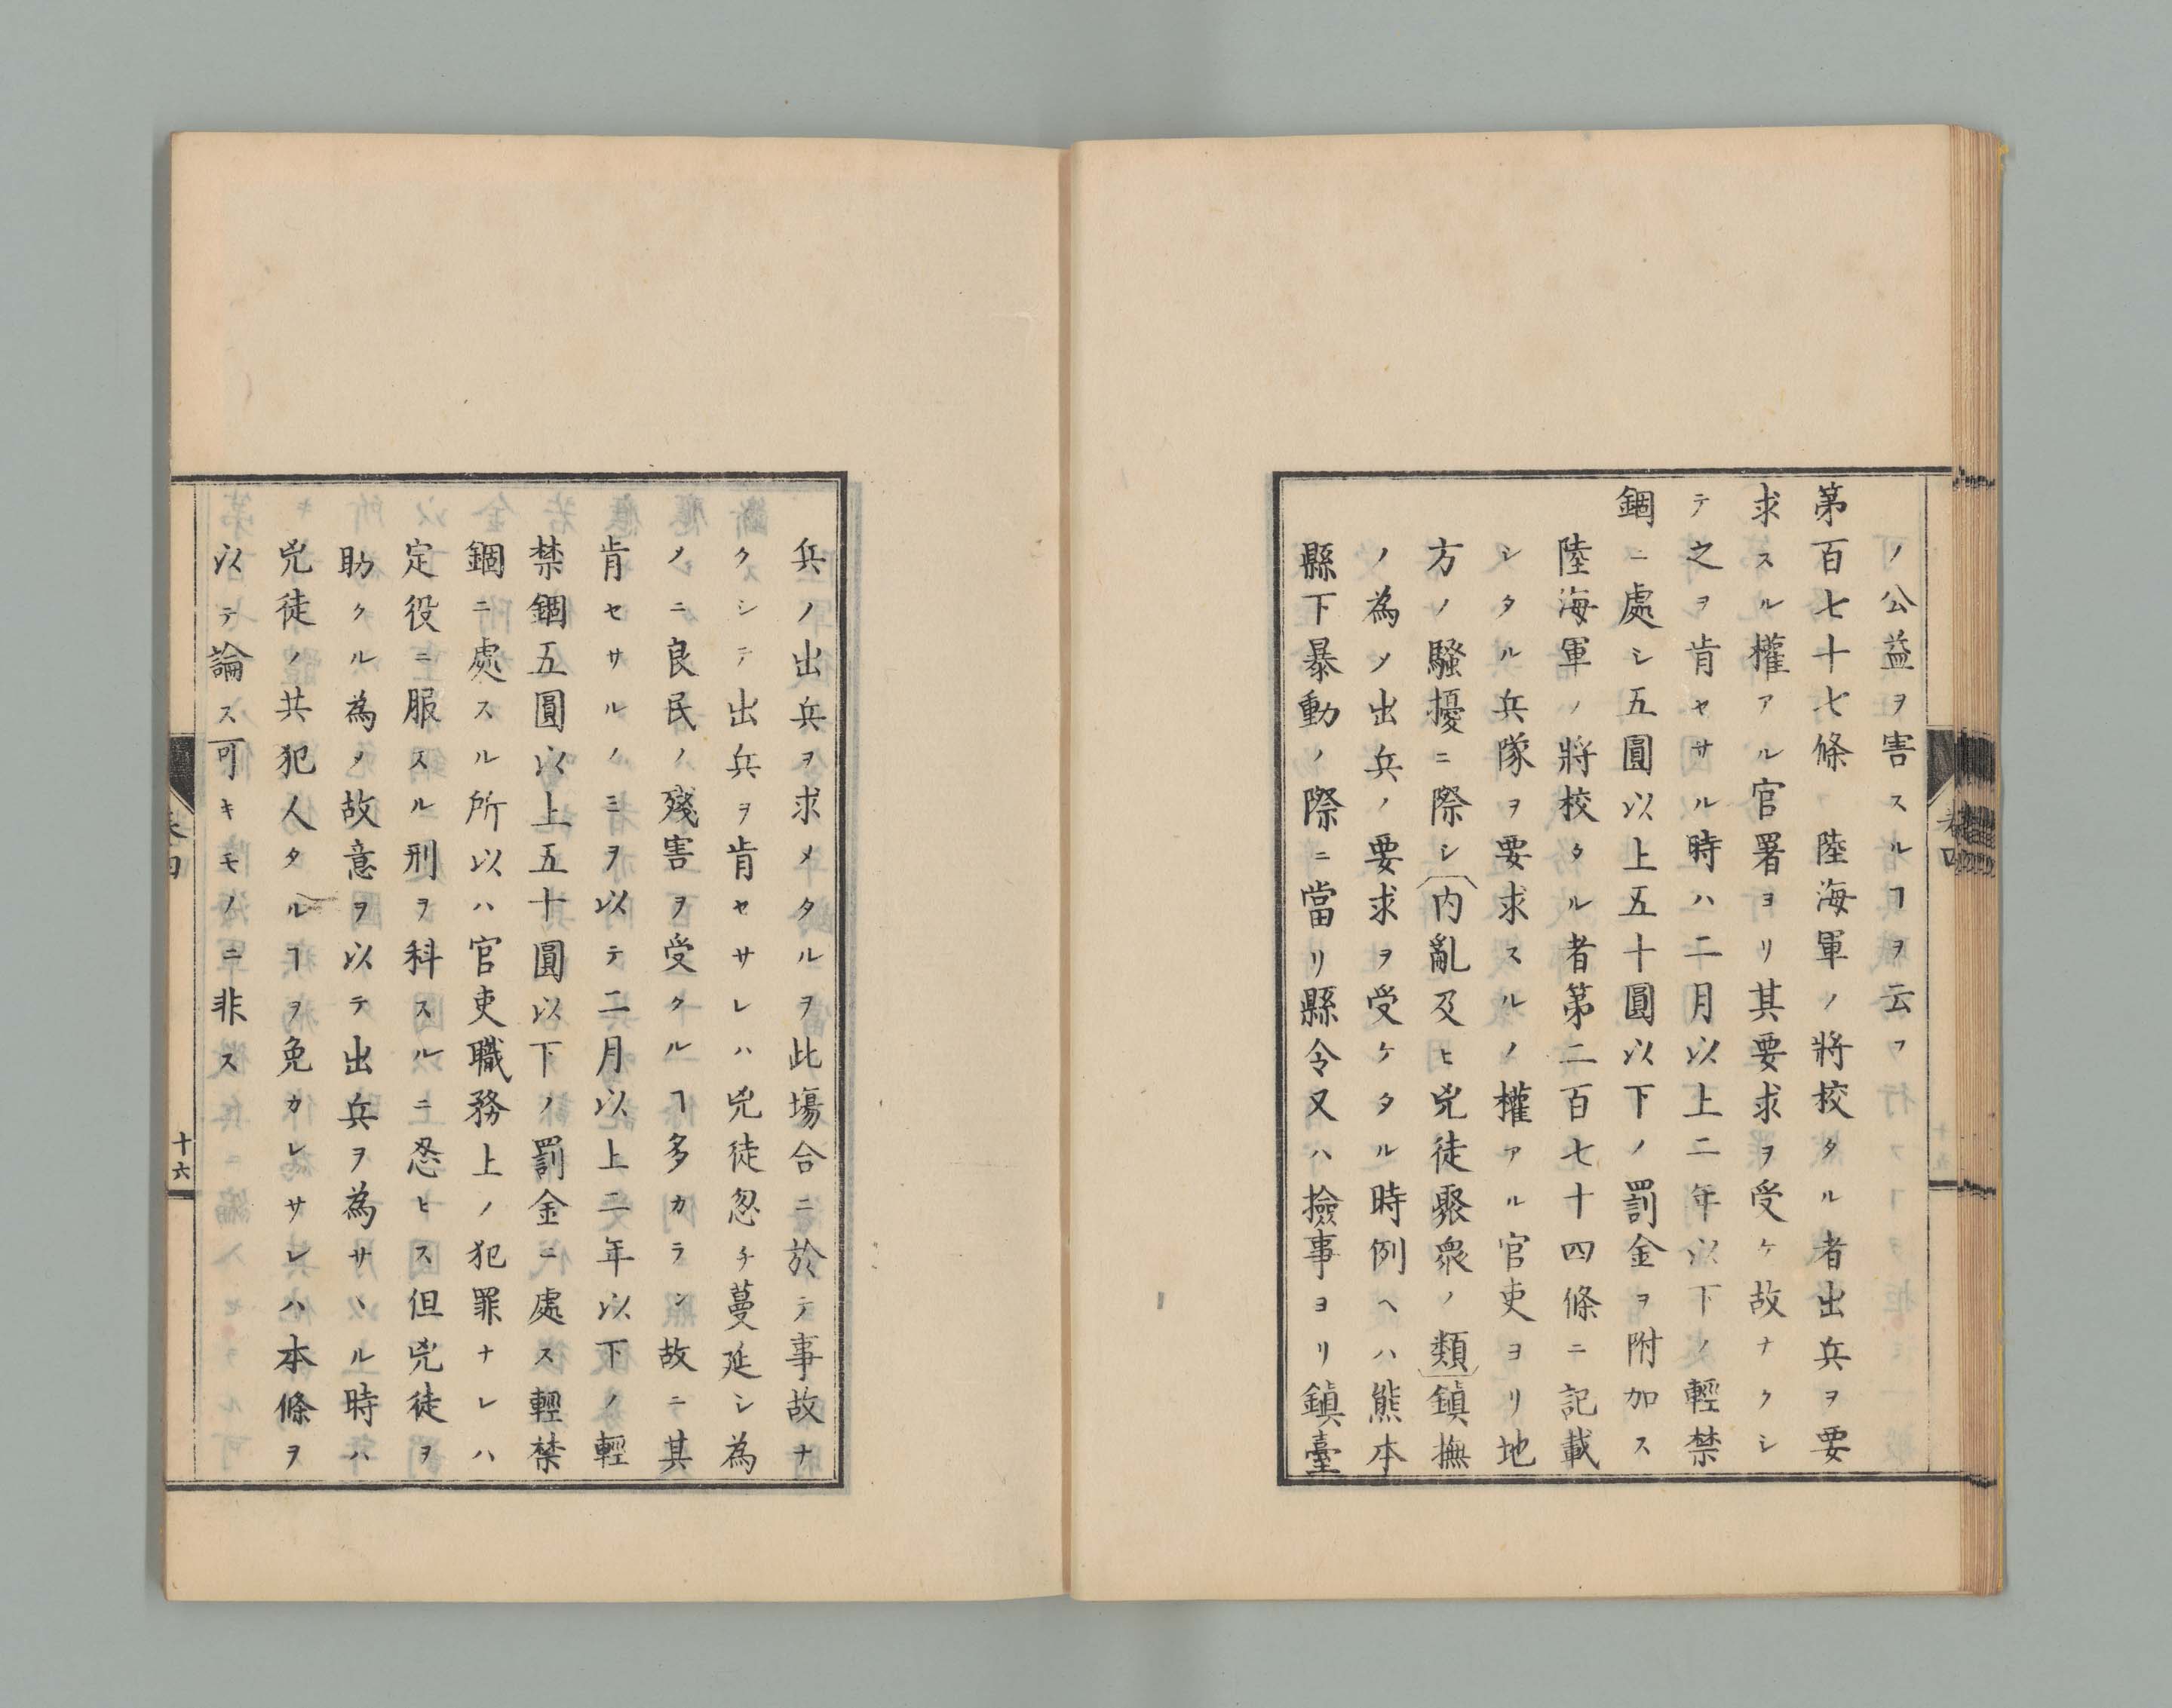 ノ公益ヲ害スルヿヲ云フ
第百七十七條　陸海軍ノ將校タル者出兵ヲ要
求スル權アル官署ヨリ其要求ヲ受ケ故ナクシ
テ之ヲ肯セサル時ハ二月以上二年以下ノ輕禁
錮ニ處シ五圓以上五十圓以下ノ罰金ヲ附加ス
陸海軍ノ將校タル者第二百七十四條ニ記載
シタル兵隊ヲ要求スルノ權アル官吏ヨリ地
方ノ騷擾ニ際シ(内亂及ヒ兇徒聚衆ノ類)鎮撫
ノ為メ出兵ノ要求ヲ受ケタル時例ヘハ熊本
縣下暴動ノ際ニ當リ縣令又ハ撿事ヨリ鎮臺
兵ノ出兵ヲ求メタルヲ此塲合ニ於テ事故ナ
クシテ出兵ヲ肯セサレハ兇徒忽チ蔓延シ為
ノニ良民ノ殘害ヲ受クルヿ多カラン故ニ其
肯セサルノミヲ以テ二月以上二年以下ノ輕
禁錮五圓以上五十圓以下ノ罰金ニ處ス輕禁
錮ニ處スル所以ハ官吏職務上ノ犯罪ナレハ
定役ニ服スル刑ヲ科スルニ忍ヒス但兇徒ヲ
助クル為メ故意ヲ以テ出兵ヲ為サヽル時ハ
兇徒ノ共犯人タルヿヲ免カレサレハ本條ヲ
以テ論ス可キモノニ非ス
卷四
十六